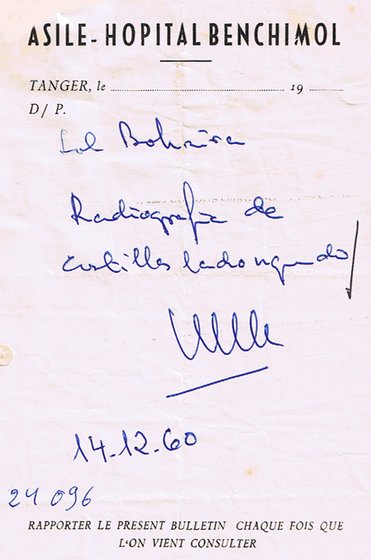 ASILE-HOPITAL BENCHIMOL
TANGER, le .......... 19 ....
D/ P.
Sol
Radiografia de
costillas lado izquierdo
14-12-60
24 096
RAPPORTER LE PRESENT BULLETIN CHAQUE FOIS QUE
L'ON VIENT CONSULTER